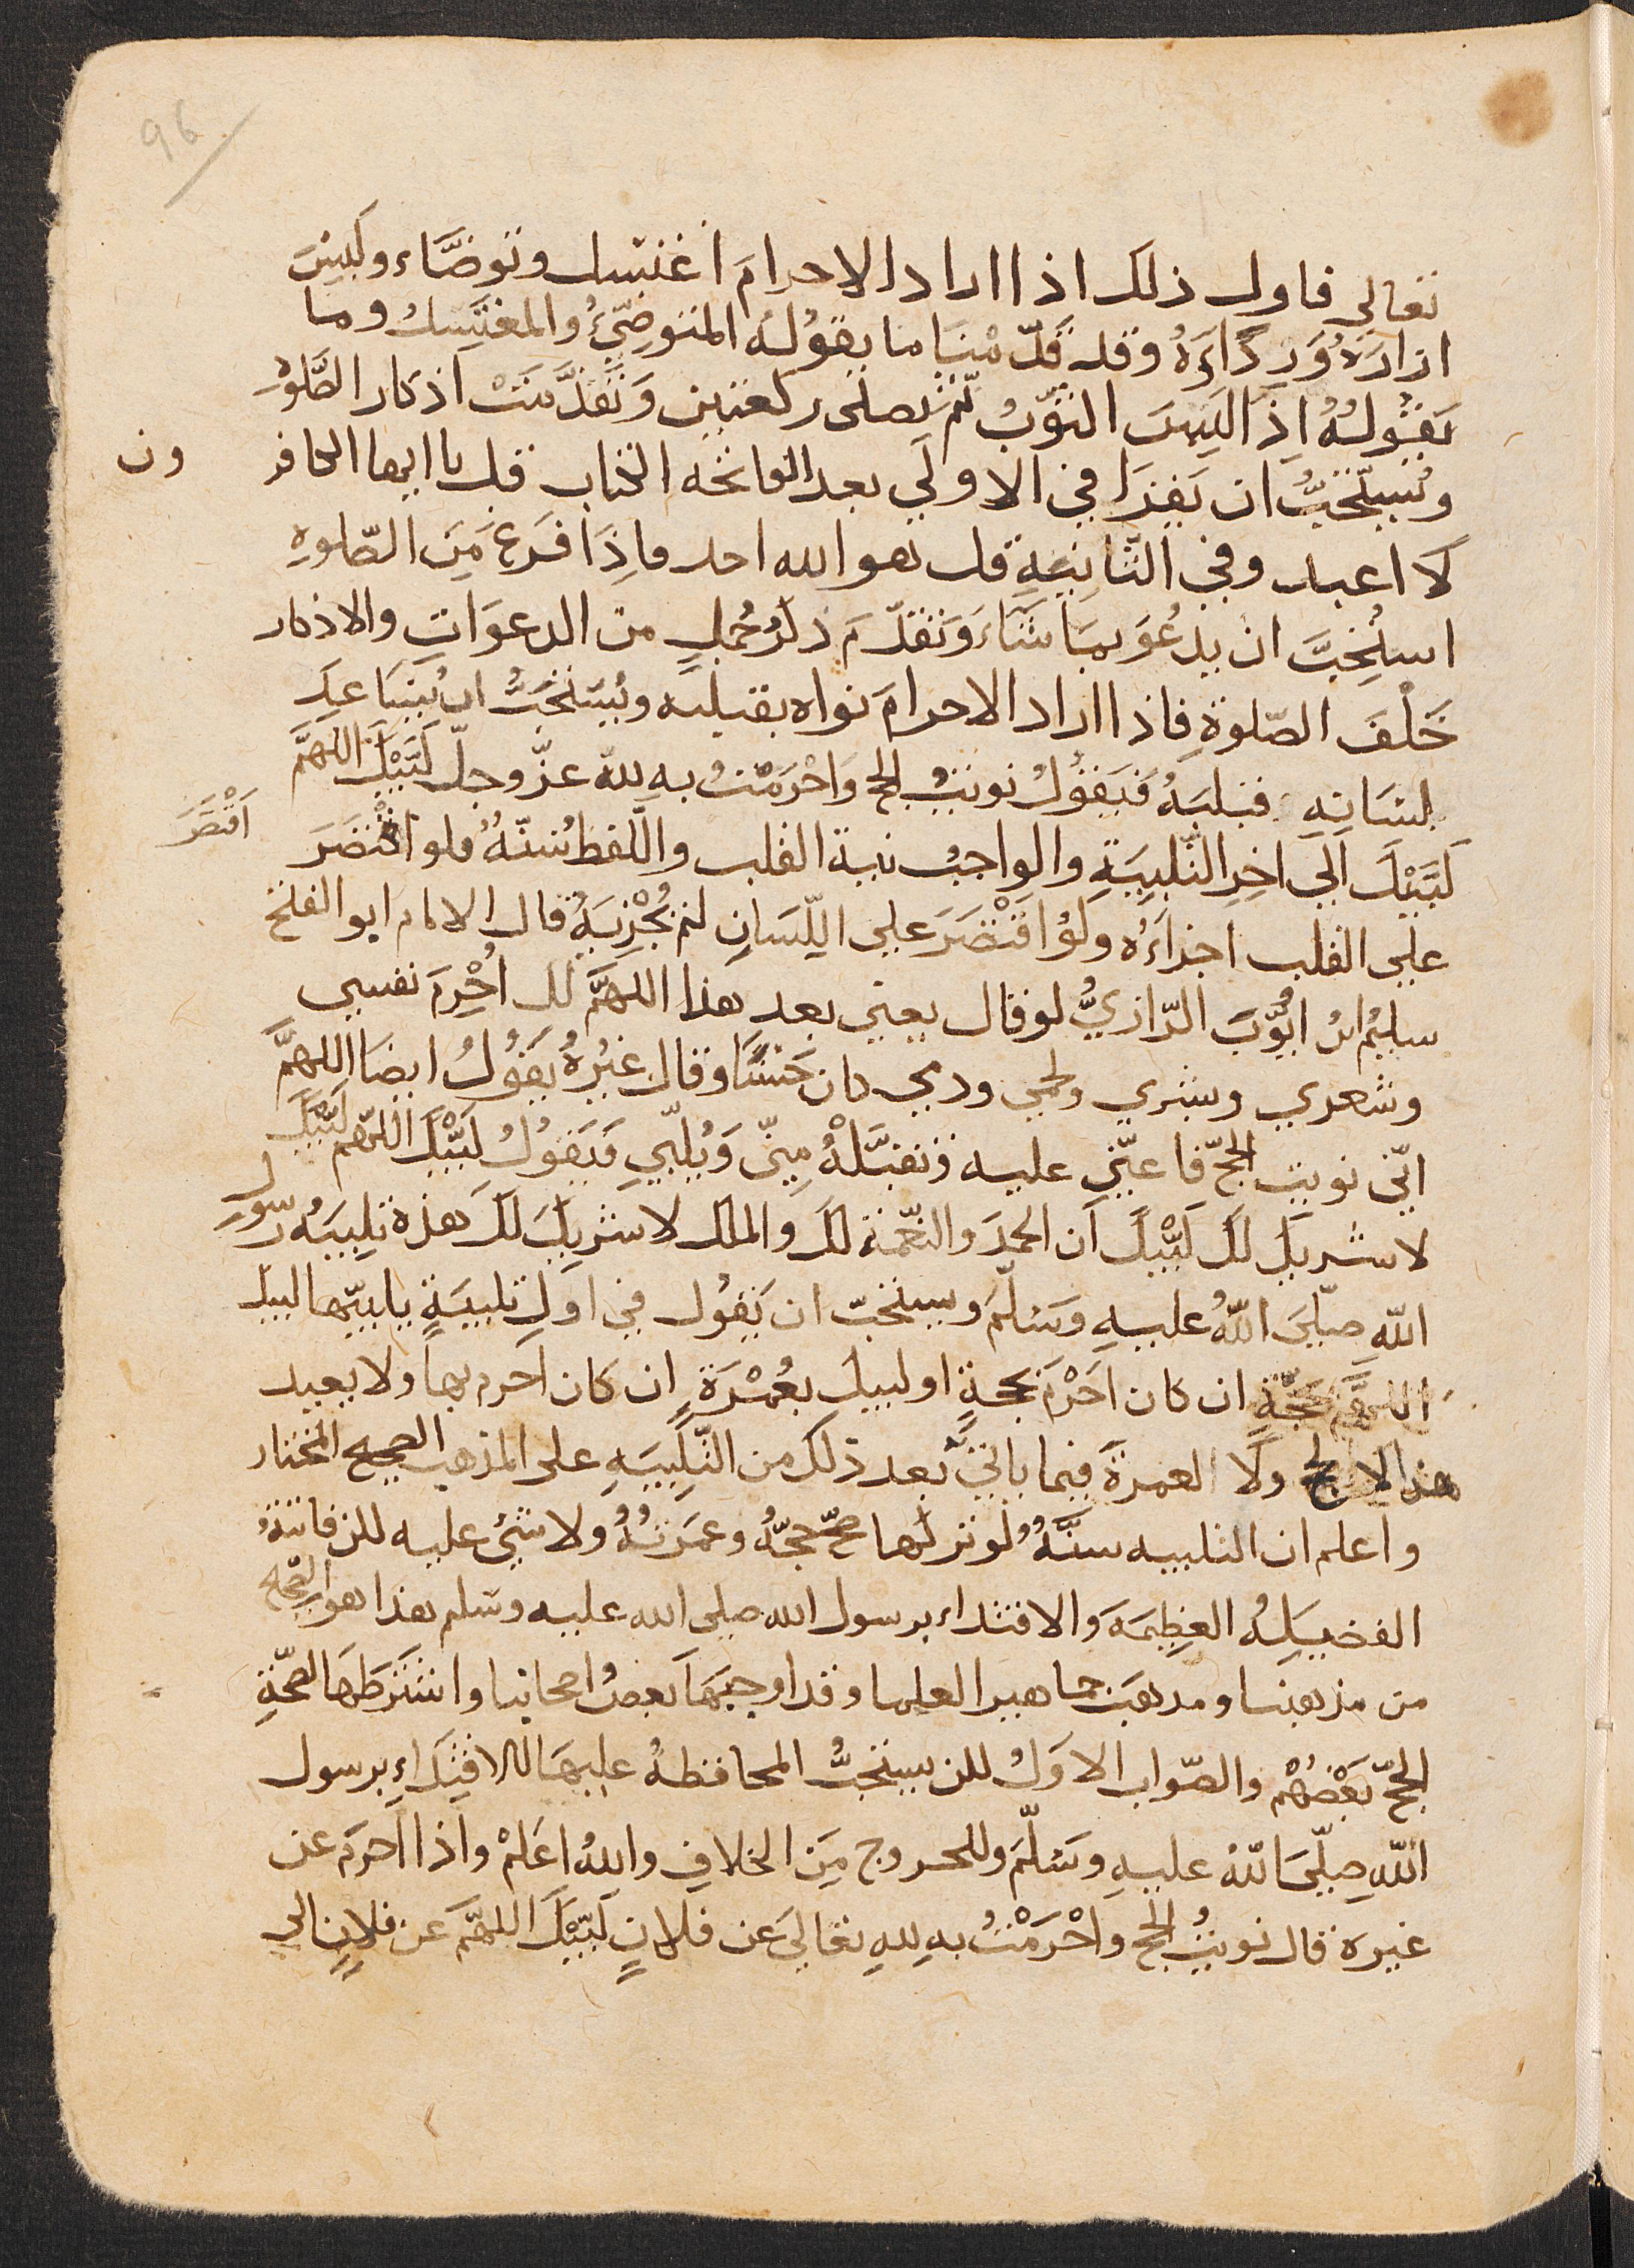 96
تعالى فاول ذلك اذا اراد الاحرام اغتسل وتوضّاء ولبس
ازارَهُ وَرِدَاءَهُ وقد قدّمْنَا ما يقوله المتوضّيُ والمغتسلُ وما
يَقُولُهُ اِذَا لَبِسَ الثوبُ ثم يصلى ركعتين وَتَقَدَّمَتْ اذكار الصَّلوٰة
ويُستحَبُّ ان يَقرَا في الاولى بعد الفاتحه الكتاب قل يا ايها الكافر
ون
لا اعبد وفي الثَّانِيَةِ قل هو الله احد فاِذَا فَرَغَ مِنَ الصّلوهِ
استُحِبَّ ان يدعُوَ بمَا شَاءَ وَتقدّمَ ذكرُ جُملٍ من الدعوَاتِ والاذكار
خَلْفَ الصّلوةِ فاذا اراد الاحرامَ نواه بقلبه ويُستحَبُّ ان يُسَاعِدَ
لسَانِهِ قلبَهُ فَيَقُولُ نويتُ الحج وَاحْرَمْتُ بهِ لله عزّ وجلّ لَبَّيْكَ اللهمَّ
لَبَّيْكَ اَلى اخِرِ التَّلبِيَةِ والواجبُ نية القلب واللّفظُ سُنّةٌ فلو اقتصَرَ
اَقْتَصَرَ
على القلب اجزاءَه ولَوْ اقتْصَرَ على اللِّسَانِ لم يُجْزِيَهُ قال الامام ابو الفتح
سليمُ ابنُ ايُّوبَ الرّازيُّ لو قال يعني بعد هذا اللهمَّ لك اُحْرِمَ نفسي
وشعري وبشري ولحمي ودمي كان حَسَنًا وقال غيرُهُ يَقُولُ ايضًا اللهمَّ
انّي نويت الحجّ فاعنّي عليه وتقبَّلْهُ مِنّى وَيُلَبِّي فَيَقُولُ لَبَّيْكَ اللهمّ لَبَّيْكَ
لا شريكَ لكَ لَبَّيْكَ اَن الحمدَ والنّعْمَة لكَ والملك لا شريكَ لكَ هذه تلبِيَهُ رسُول
اللّهِ صلّى اللّهُ عليهِ وَسَلّمَ ويستحَبّ ان يَقُول في اولِ تلبيَةٍ يلبيّها لبيك
اللهُمَّ بحَجَّةٍ ان كان احَرْمَ بحجةٍ او لبيك بعُمْرَةٍ ان كان اَحرم بها ولا يعيد
ولَا العمرةَ فيما ياتيَّ بَعد ذلك من التَّلبِيَهِ على المذهب الصحيح المختار
واعلم ان التلبيه سنَّةٌ لو تركها صحَّ حجّهُ وعمرَتُهُ ولا شيُ عليه لكن فاتتهُ
الفضيلَةُ العظِيمَهَ والاقتداء برسول الله صلى الله عليه وسلم هذا هو الصّحيح
من مذهبنا ومذهبَ جماهير العلما وقد اوجبَهَا بَعضُ اصحابنا واشتَرطَهَا لصحّةِ
الحجّ بَعْضُهُم والصّواب الاوَلُ لكن يستحَبُّ المحافظهُ عليهَا للاقتِدَاءِ برسول
اللّهِ صلّى اللّهُ عليهِ وسَلّمَ وللخروج مِنَ الخلافِ واللهُ اَعَلمْ واذا اَحرَم عن
غيرهَ قال نويتُ الحج واحْرَمْتُ بهِ للهِ تعَالى عَن فلانٍ لَبَّيْكَ اللهمّ عَن فلانٍ الى